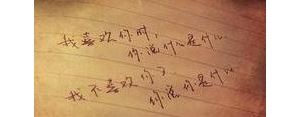 我喜欢你时，
你说什么是什么
我不喜欢你了
你说你是什么